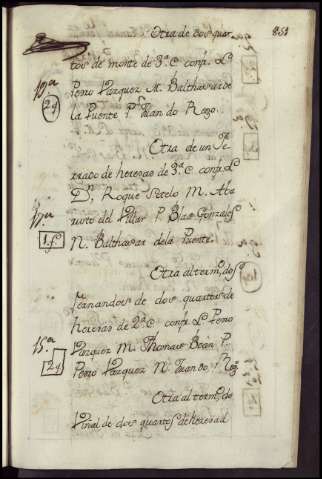 851
Otra de dos quar
tos de monte de 3ª C conf. L.
Pedro Vazquez M. Balthasar de
la Puente P. Juan do Rego.
Otra de un Fe
rrado de heredad de 3ª C conf. L
Dn. Roque Sotelo M. Aba
rusto del Villar P. Blas Gonzalez
N. Balthasar dela Puente.
Otra al term. do
Fernandes de dos quartos de
heredad de 2ª C conf. L Pedro
Vazquez M. Thomas Bean P.
Pedro Vazquez N. Juan do Reg.
Otra al term. do
Piñal de dos quartos de heredad